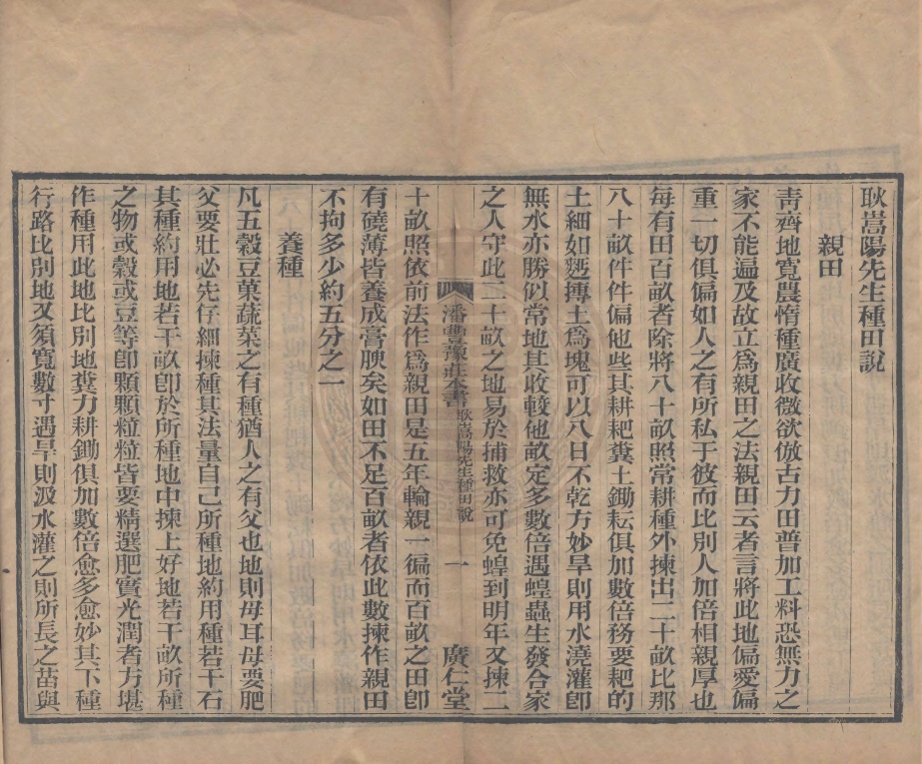 耿嵩陽先生種田說
親田
青齊地寬農惰種廣收微欲倣古力田普加工料恐無力之
家不能遍及故立爲親田之法親田云者言將此地偏愛偏
重一切俱偏如人之有所私于彼而比別人加倍相親厚也
每有田百畝者除將八十畝照常耕種外揀出二十畝比那
八十畝件件偏他些其耕耙糞土鋤耘俱加數倍務要耙的
土細如麫摶土爲塊可以八日不乾方妙旱則用水澆灌卽
無水亦勝似常地其收較他畝定多數倍遇蝗蟲生發合家
之人守此二十畝之地易於捕救亦可免蝗到明年又揀二
潘豐豫莊本書 耿嵩陽先生種田說 一 廣仁堂
十畝照依前法作爲親田是五年輪親一徧而百畝之田卽
有磽薄皆養成膏腴矣如田不足百畝者依此數揀作親田
不拘多少約五分之一
養種
凡五穀豆菓蔬菜之有種猶人之有父也地則母耳母要肥
父要壯必先仔細揀種其法量自己所種地約用種若干石
其種約用地若干畝卽於所種地中揀上好地若干畝所種
之物或穀或豆等卽顆顆粒粒皆要精選肥實光潤者方堪
作種用此地比別地糞力耕鋤俱加數倍愈多愈妙其下種
行路比別地又須寬數寸遇旱則汲水灌之則所長之苗與